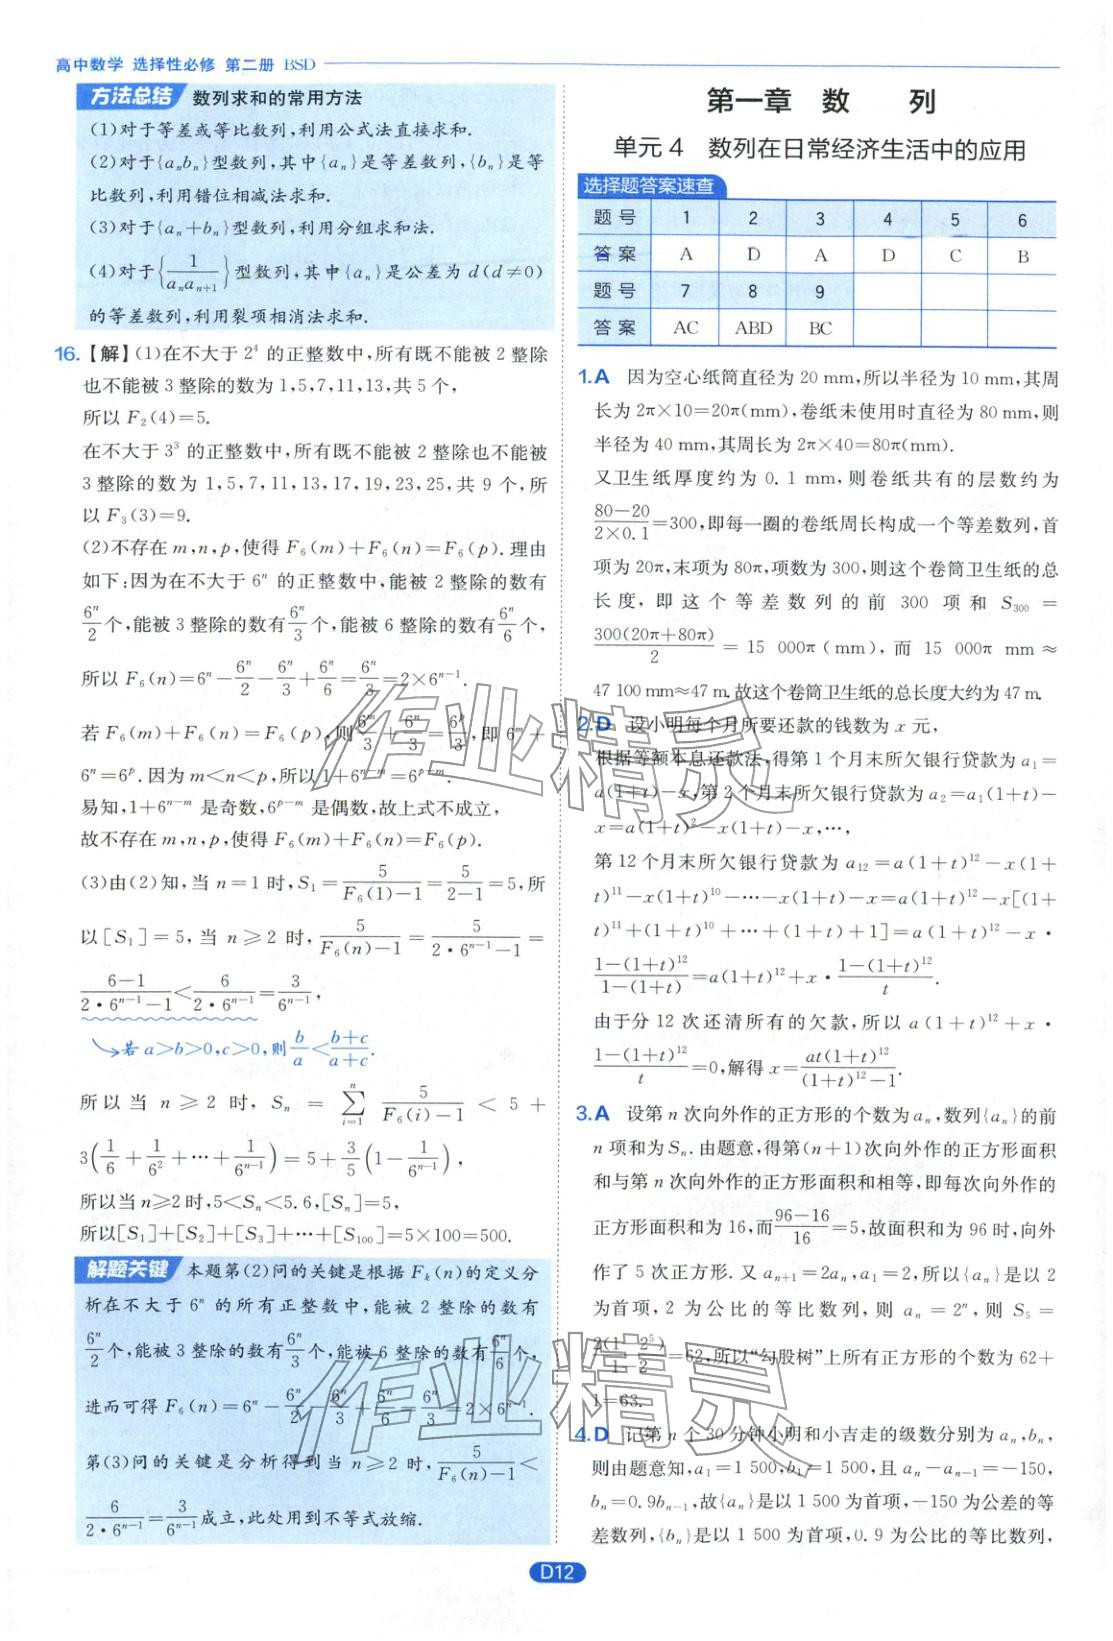 高中数学 选择性必修 第二册 BSD
方法总结 数列求和的常用方法
(1)对于等差或等比数列,利用公式法直接求和.
(2)对于{aₙbₙ}型数列,其中{aₙ}是等差数列,{bₙ}是等
比数列,利用错位相减法求和.
(3)对于{aₙ+bₙ}型数列,利用分组求和法.
(4)对于{1/(aₙaₙ₊₁)}型数列,其中{aₙ}是公差为 d(d≠0)
的等差数列,利用裂项相消法求和.
16.【解】(1)在不大于 2⁴ 的正整数中,所有既不能被 2 整除
也不能被 3 整除的数为 1,5,7,11,13,共 5 个,
所以 F₂(4)=5.
在不大于 3³ 的正整数中,所有既不能被 2 整除也不能被
3 整除的数为 1,5,7,11,13,17,19,23,25,共 9 个,所
以 F₃(3)=9.
(2)不存在 m,n,p,使得 F₆(m)+F₆(n)=F₆(p).理由
如下:因为在不大于 6ⁿ 的正整数中,能被 2 整除的数有
6ⁿ/2个,能被 3 整除的数有6ⁿ/3个,能被 6 整除的数有6ⁿ/6个,
所以 F₆(n)=6ⁿ−6ⁿ/2−6ⁿ/3+6ⁿ/6=6ⁿ/3=2×6ⁿ⁻¹.
若 F₆(m)+F₆(n)=F₆(p),则6ᵐ/3+6ⁿ/3=6ᵖ/3,即 6ᵐ+
6ⁿ=6ᵖ.因为 m<n<p,所以 1+6ⁿ⁻ᵐ=6ᵖ⁻ᵐ.
易知,1+6ⁿ⁻ᵐ 是奇数,6ᵖ⁻ᵐ 是偶数,故上式不成立,
故不存在 m,n,p,使得 F₆(m)+F₆(n)=F₆(p).
(3)由(2)知,当 n=1 时,S₁=5/(F₆(1)−1)=5/(2−1)=5,所
以[S₁]=5,当 n≥2 时,5/(F₆(n)−1)=5/(2·6ⁿ⁻¹−1)=
(6−1)/(2·6ⁿ⁻¹−1)<6/(2·6ⁿ⁻¹)=3/6ⁿ⁻¹,
若 a>b>0,c>0,则b/a<(b+c)/(a+c).
所以当 n≥2 时,Sₙ=∑ⁿᵢ₌₁ 5/(F₆(i)−1)<5+
3(1/6+1/6²+…+1/6ⁿ⁻¹)=5+3/5(1−1/6ⁿ⁻¹),
所以当 n≥2 时,5<Sₙ<5.6,[Sₙ]=5,
所以[S₁]+[S₂]+[S₃]+…+[S₁₀₀]=5×100=500.
解题关键 本题第(2)问的关键是根据 Fₖ(n)的定义分
析在不大于 6ⁿ 的所有正整数中,能被 2 整除的数有
6ⁿ/2个,能被 3 整除的数有6ⁿ/3个,能被 6 整除的数有6ⁿ/6个,
进而可得 F₆(n)=6ⁿ−6ⁿ/2−6ⁿ/3+6ⁿ/6=6ⁿ/3=2×6ⁿ⁻¹.
第(3)问的关键是分析得到当 n≥2 时,5/(F₆(n)−1)<
6/(2·6ⁿ⁻¹)=3/6ⁿ⁻¹成立,此处用到不等式放缩.
第一章 数 列
单元 4 数列在日常经济生活中的应用
选择题答案速查
题 号 1 2 3 4 5 6
答 案 A D A D C B
题 号 7 8 9
答 案 AC ABD BC
1.A 因为空心纸筒直径为 20 mm,所以半径为 10 mm,其周
长为 2π×10=20π(mm),卷纸未使用时直径为 80 mm,则
半径为 40 mm,其周长为 2π×40=80π(mm).
又卫生纸厚度约为 0.1 mm,则卷纸共有的层数约为
(80−20)/(2×0.1)=300,即每一圈的卷纸周长构成一个等差数列,首
项为 20π,末项为 80π,项数为 300,则这个卷筒卫生纸的总
长度,即这个等差数列的前 300 项和 S₃₀₀=
300(20π+80π)/2=15 000π(mm),而 15 000π mm≈
47 100 mm≈47 m.故这个卷筒卫生纸的总长度大约为 47 m.
2.D 设小明每个月所要还款的钱数为 x 元,
根据等额本息还款法,得第 1 个月末所欠银行贷款为 a₁=
a(1+t)−x,第 2 个月末所欠银行贷款为 a₂=a₁(1+t)−
x=a(1+t)²−x(1+t)−x,…,
第 12 个月末所欠银行贷款为 a₁₂=a(1+t)¹²−x(1+
t)¹¹−x(1+t)¹⁰−…−x(1+t)−x=a(1+t)¹²−x[(1+
t)¹¹+(1+t)¹⁰+…+(1+t)+1]=a(1+t)¹²−x·
(1−(1+t)¹²)/(1−(1+t))=a(1+t)¹²+x·(1−(1+t)¹²)/t.
由于分 12 次还清所有的欠款,所以 a(1+t)¹²+x·
(1−(1+t)¹²)/t=0,解得 x=at(1+t)¹²/((1+t)¹²−1).
3.A 设第 n 次向外作的正方形的个数为 aₙ,数列{aₙ}的前
n 项和为 Sₙ.由题意,得第(n+1)次向外作的正方形面积
和与第 n 次向外作的正方形面积和相等,即每次向外作的
正方形面积和为 16,而(96−16)/16=5,故面积和为 96 时,向外
作了 5 次正方形.又 aₙ₊₁=2aₙ,a₁=2,所以{aₙ}是以 2
为首项,2 为公比的等比数列,则 aₙ=2ⁿ,则 S₅=
2(1−2⁵)/(1−2)=62,所以“勾股树”上所有正方形的个数为 62+
1=63.
4.D 记第 n 个 30 分钟小明和小吉走的级数分别为 aₙ,bₙ,
则由题意知,a₁=1 500,b₁=1 500,且 aₙ−aₙ₋₁=−150,
bₙ=0.9bₙ₋₁,故{aₙ}是以 1 500为首项,−150为公差的等
差数列,{bₙ}是以 1 500 为首项,0.9 为公比的等比数列,
D12
作业精灵
作业精灵